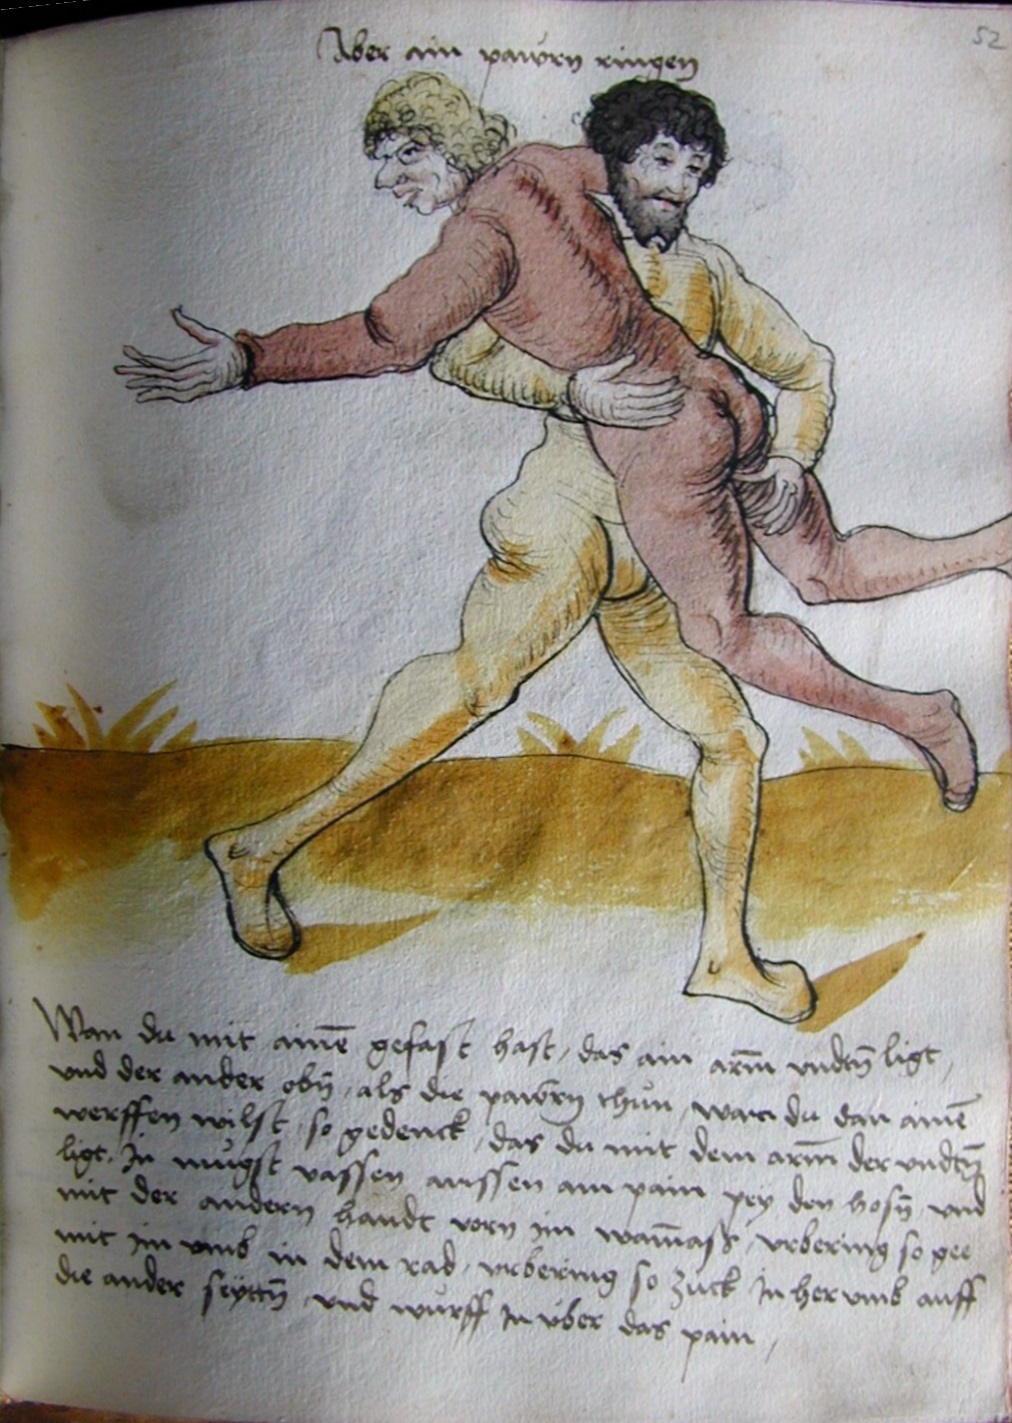 52
Aber ain pawrn ringen
Wan du mit aine͞ gefast hast, das ain arm̄ vndtn̄ ligt,
vnd der ander obn̄, als die pawrn̄ thu̇n, wan du dan aine͞
werffen wilst, so gedenck, das du mit dem arm̄ der vndtn̄
ligt, In mu̇gst vassen aussen am pain pey den hosn̄ vnd
mit der andern handt vorn im wam̄ass, vrbering so gee
mit im vmb in dem rad, vrbering so zuck In her vmb auff
die ander seyttn̄ vnd wu̇rff In vber das pain,